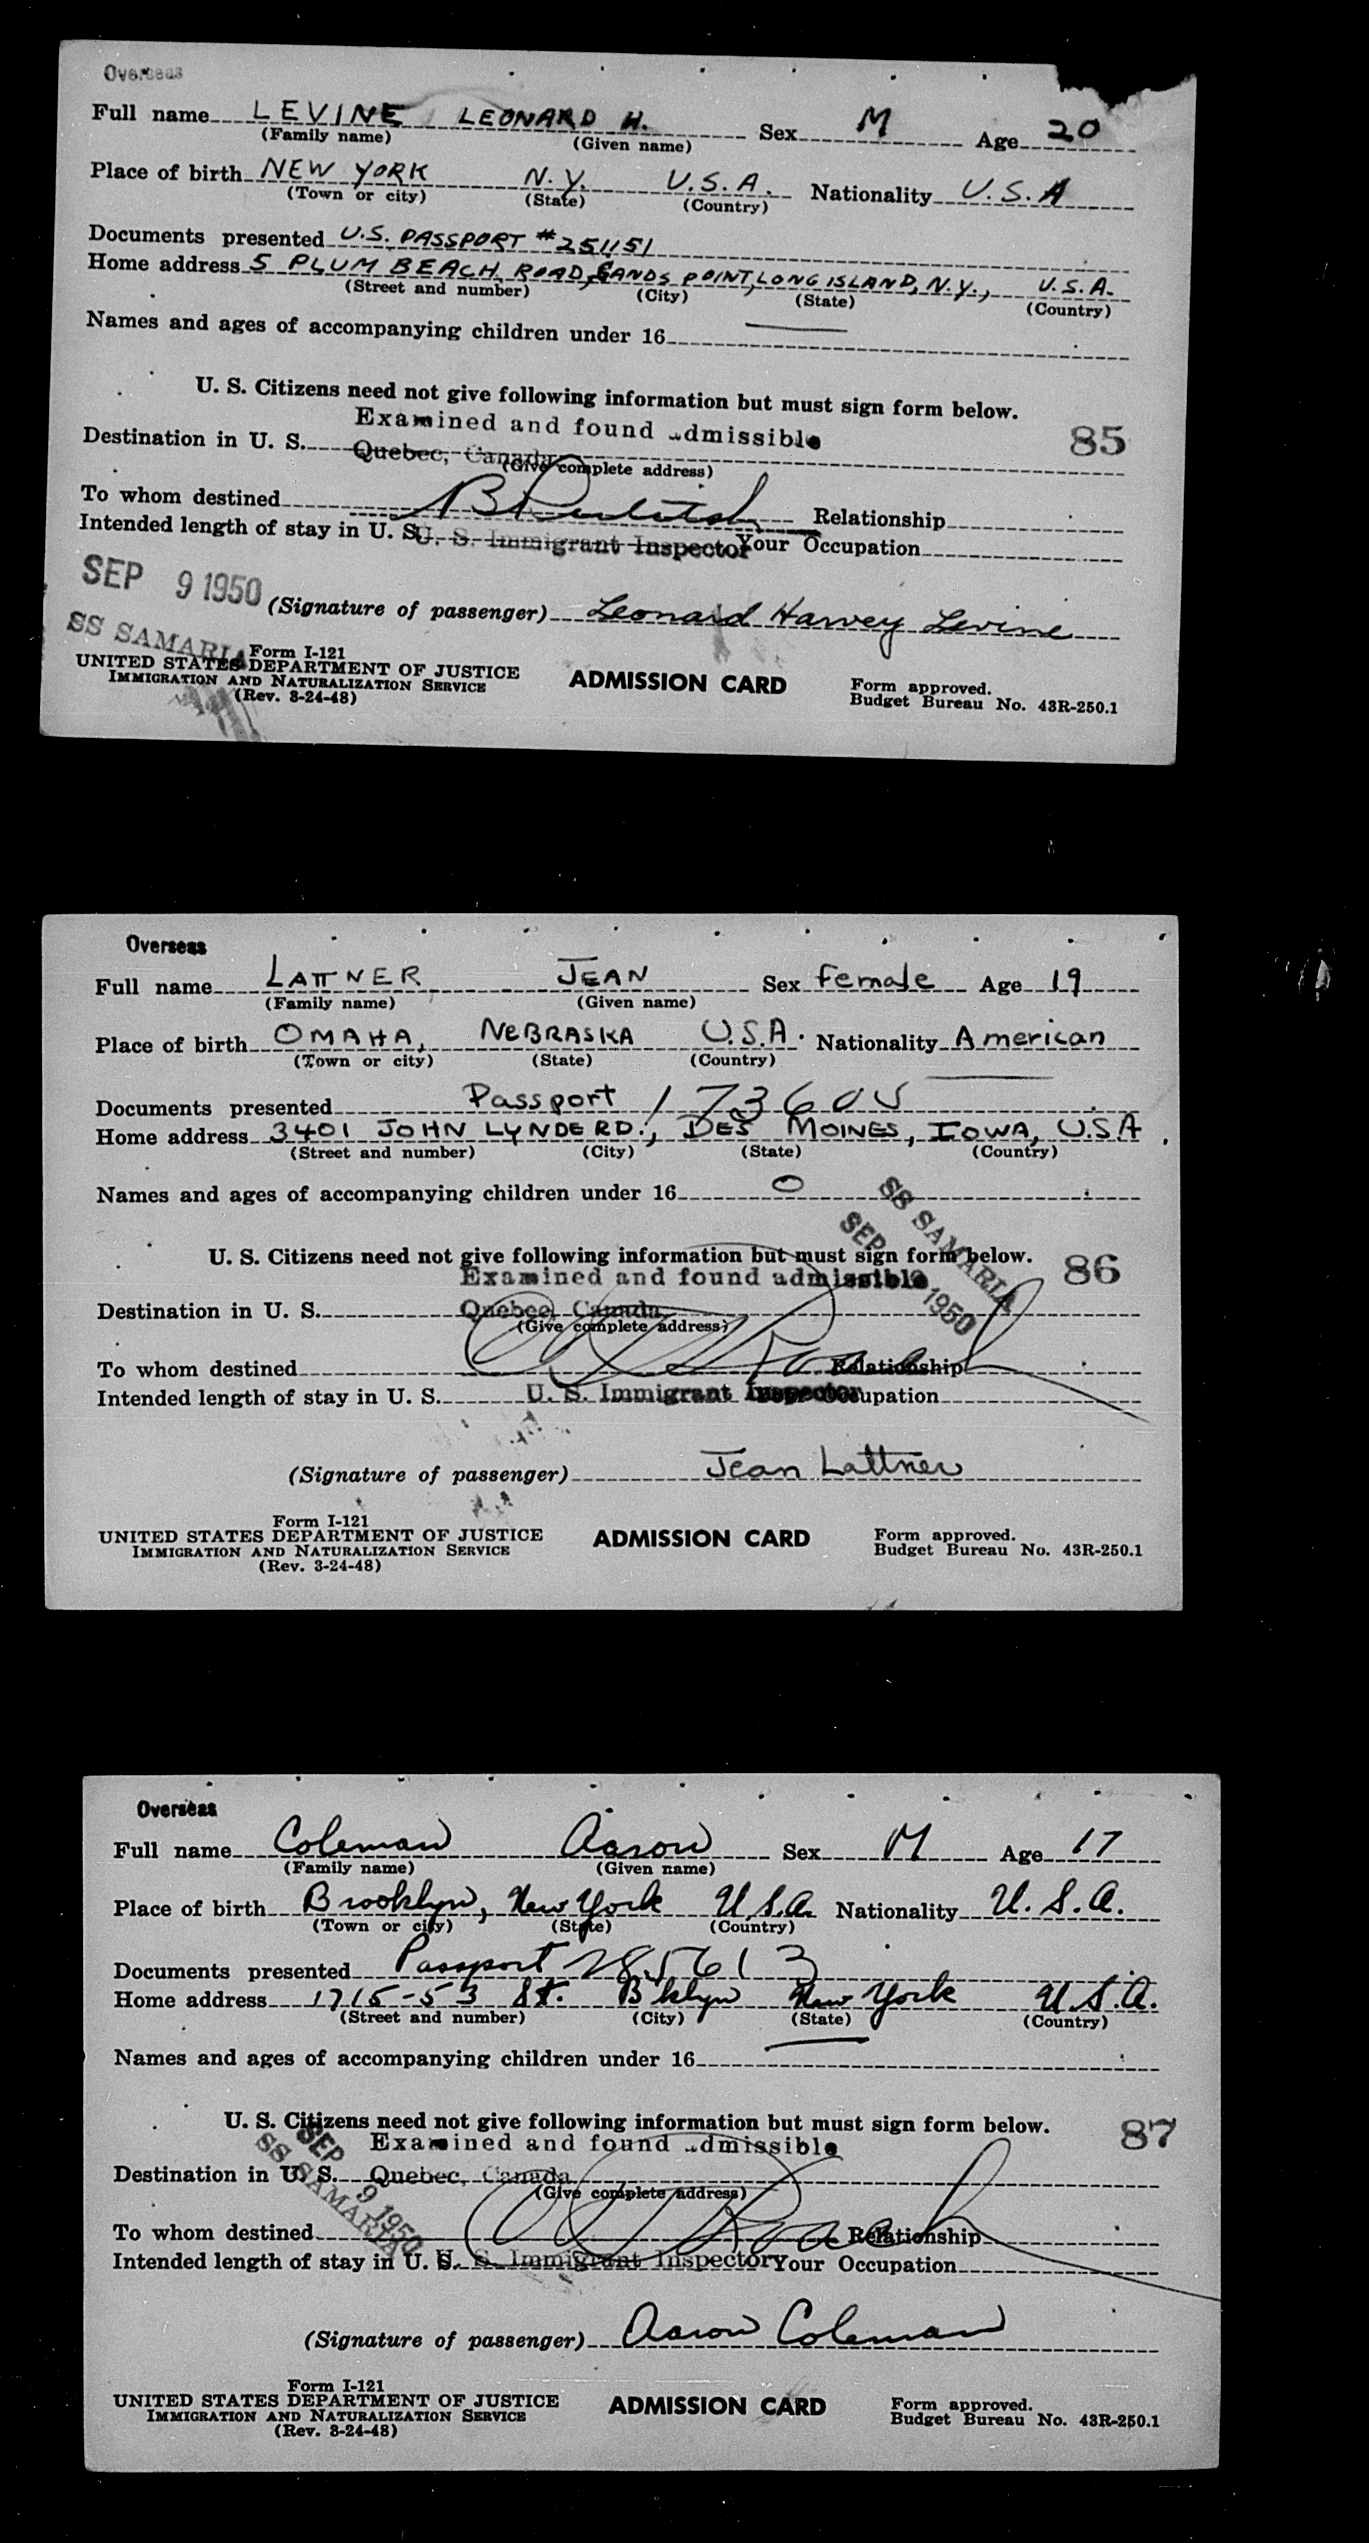 Overseas
Full name LEVINE LEONARD H. Sex M Age 20
(Family name) (Given name)
Place of birth NEW YORK N.Y. U.S.A. Nationality U.S.A
(Town or city) (State) (Country)
Documents presented U.S. PASSPORT #251151
Home address 5 PLUM BEACH ROAD, SANDS POINT, LONG ISLAND, N.Y., U.S.A.
(Street and number) (City) (State) (Country)
Names and ages of accompanying children under 16
U. S. Citizens need not give following information but must sign form below.
Examined and found admissible
85
Destination in U. S. Quebec, Canada
(Give complete address)
To whom destined Relationship
Intended length of stay in U. S. U. S. Immigrant Inspector Your Occupation
SEP 9 1950
(Signature of passenger) Leonard Harvey Levine
SS SAMARIA
Form I-121
UNITED STATES DEPARTMENT OF JUSTICE
IMMIGRATION AND NATURALIZATION SERVICE
(Rev. 3-24-48)
ADMISSION CARD
Form approved.
Budget Bureau No. 43R-250.1
Overseas
Full name LATTNER JEAN Sex female Age 19
(Family name) (Given name)
Place of birth OMAHA, NEBRASKA U.S.A. Nationality American
(Town or city) (State) (Country)
Documents presented Passport
Home address 3401 JOHN LYNDE RD., DES MOINES, IOWA, U.S.A.
(Street and number) (City) (State) (Country)
Names and ages of accompanying children under 16 0
SS SAMARIA
SEP 9 1950
U. S. Citizens need not give following information but must sign form below.
Examined and found admissible
86
Destination in U. S. Quebec, Canada
(Give complete address)
To whom destined Relationship
Intended length of stay in U. S. U. S. Immigrant Inspector Your Occupation
(Signature of passenger) Jean Lattner
Form I-121
UNITED STATES DEPARTMENT OF JUSTICE
IMMIGRATION AND NATURALIZATION SERVICE
(Rev. 3-24-48)
ADMISSION CARD
Form approved.
Budget Bureau No. 43R-250.1
Overseas
Full name Coleman Aaron Sex M Age 17
(Family name) (Given name)
Place of birth Brooklyn, New York U.S.A. Nationality U.S.A.
(Town or city) (State) (Country)
Documents presented Passport 285613
Home address 1715-53 St. B'klyn New York U.S.A.
(Street and number) (City) (State) (Country)
Names and ages of accompanying children under 16
U. S. Citizens need not give following information but must sign form below.
SEP 9 1950
SS SAMARIA
Examined and found admissible
87
Destination in U. S. Quebec, Canada
(Give complete address)
To whom destined Relationship
Intended length of stay in U. S. U. S. Immigrant Inspector Your Occupation
(Signature of passenger) Aaron Coleman
Form I-121
UNITED STATES DEPARTMENT OF JUSTICE
IMMIGRATION AND NATURALIZATION SERVICE
(Rev. 3-24-48)
ADMISSION CARD
Form approved.
Budget Bureau No. 43R-250.1